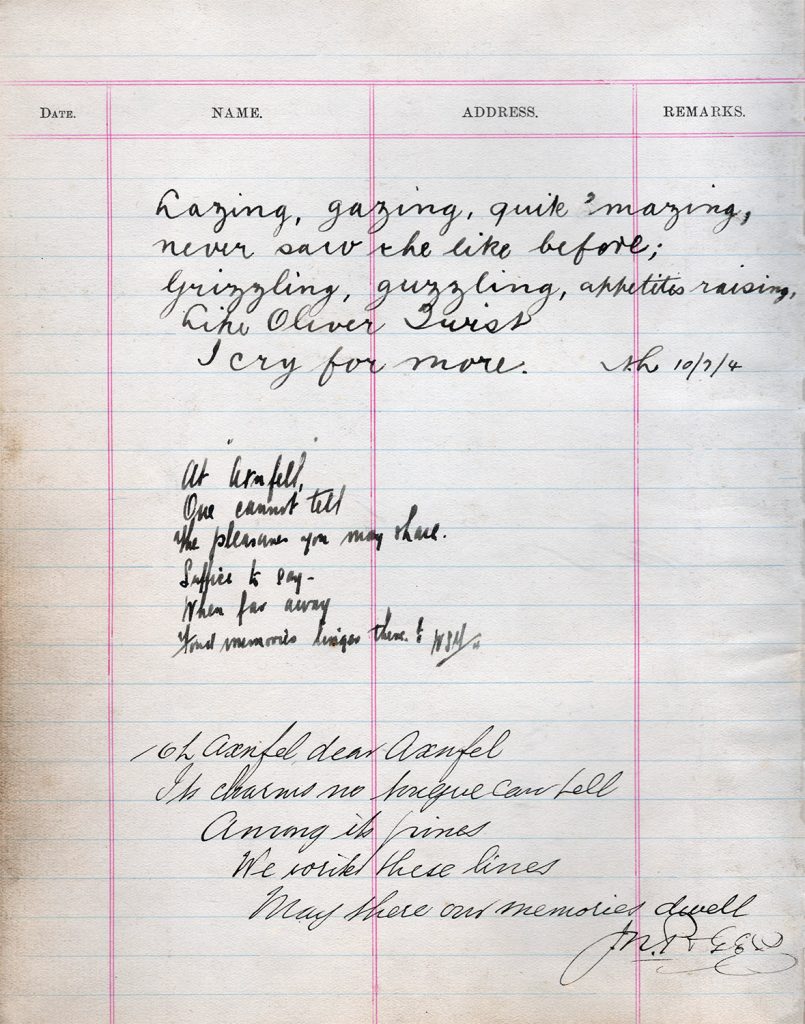 DATE. NAME. ADDRESS. REMARKS.
Lazing, gazing, quite 'mazing,
never saw the like before;
Grizzling, guzzling, appetites raising,
Like Oliver Twist
I cry for more. 10/7/4
At "Axnfell,
One cannot tell
The pleasures you may share.
Suffice to say-
When far away
Fond memories linger there.!
Oh Axnfel dear Axnfel
Its charms no tongue can tell
Among its pines
We write these lines
May there our memories dwell